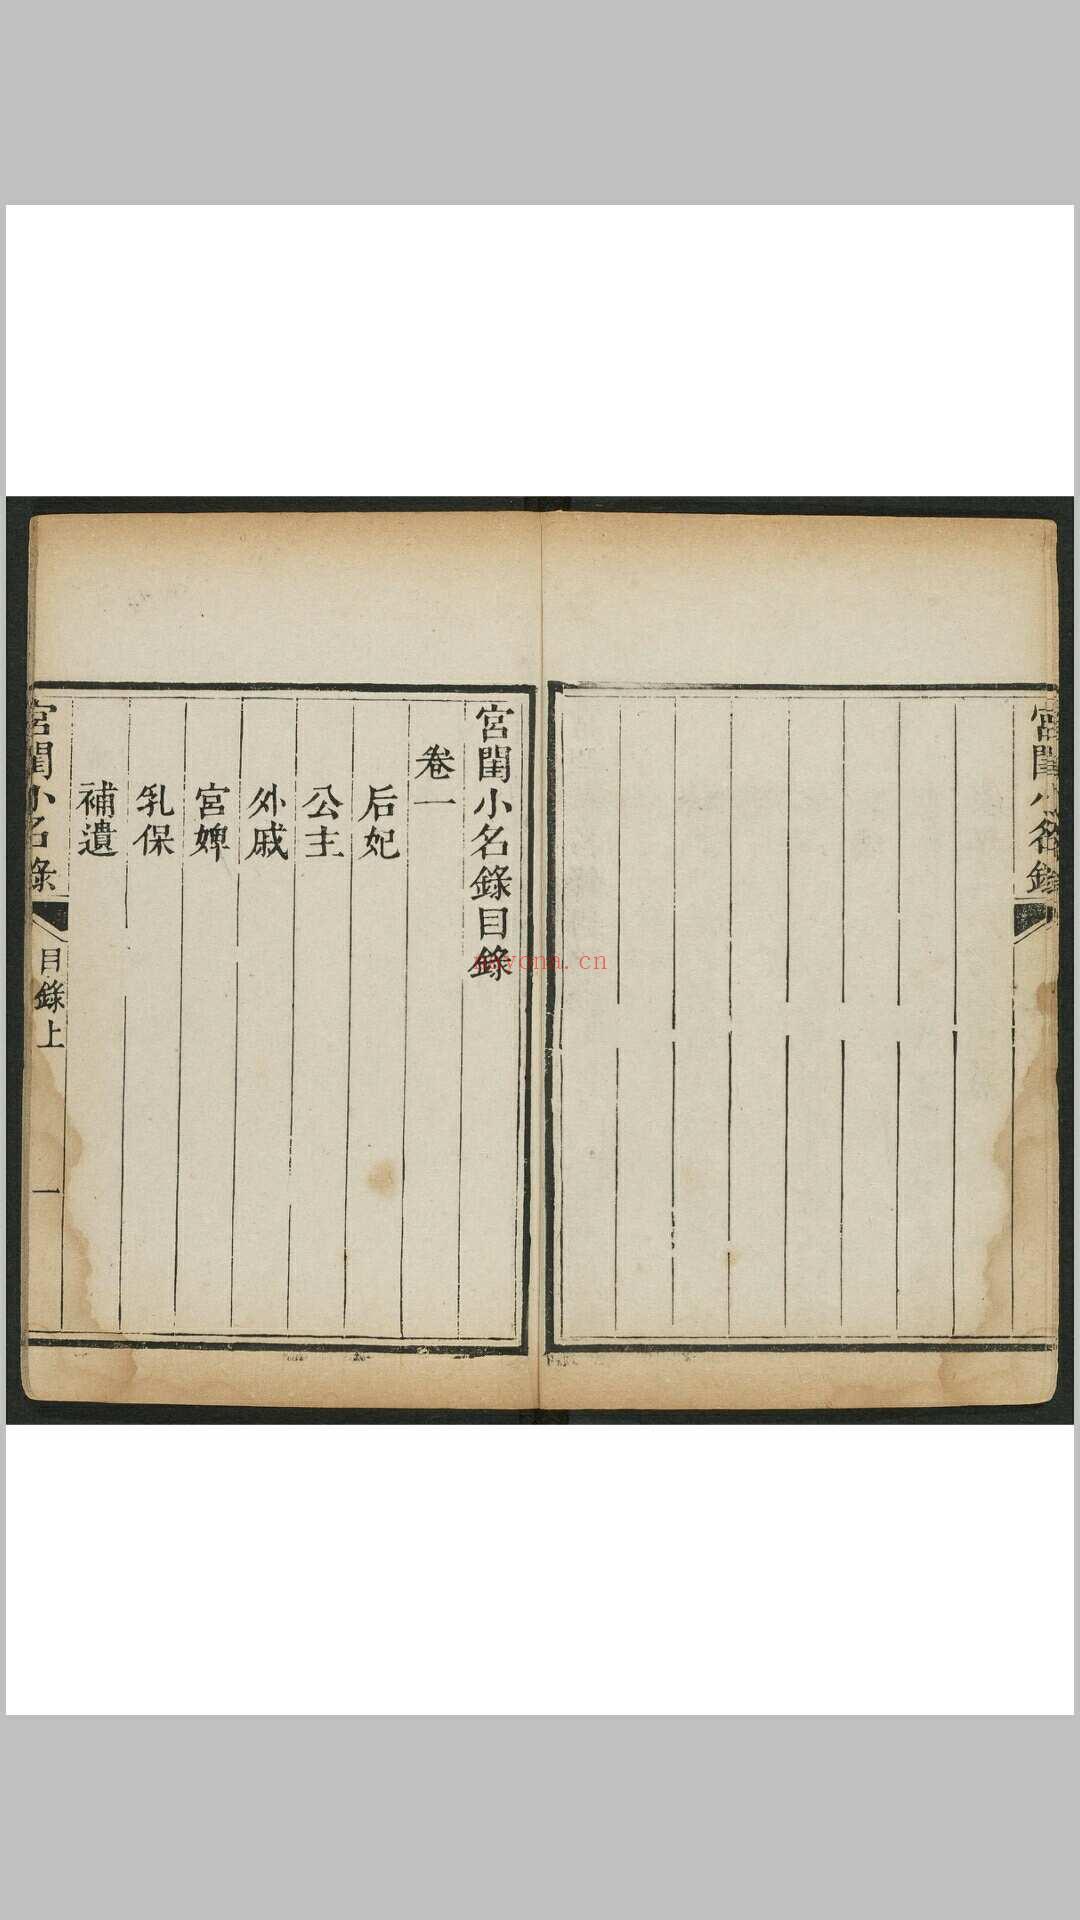 宮閨小名錄
宮閨小名錄目錄
卷一
后妃
公主
外戚
宮婢
乳保
補遺
宮閨小名錄
目錄上
一
nayona.cn